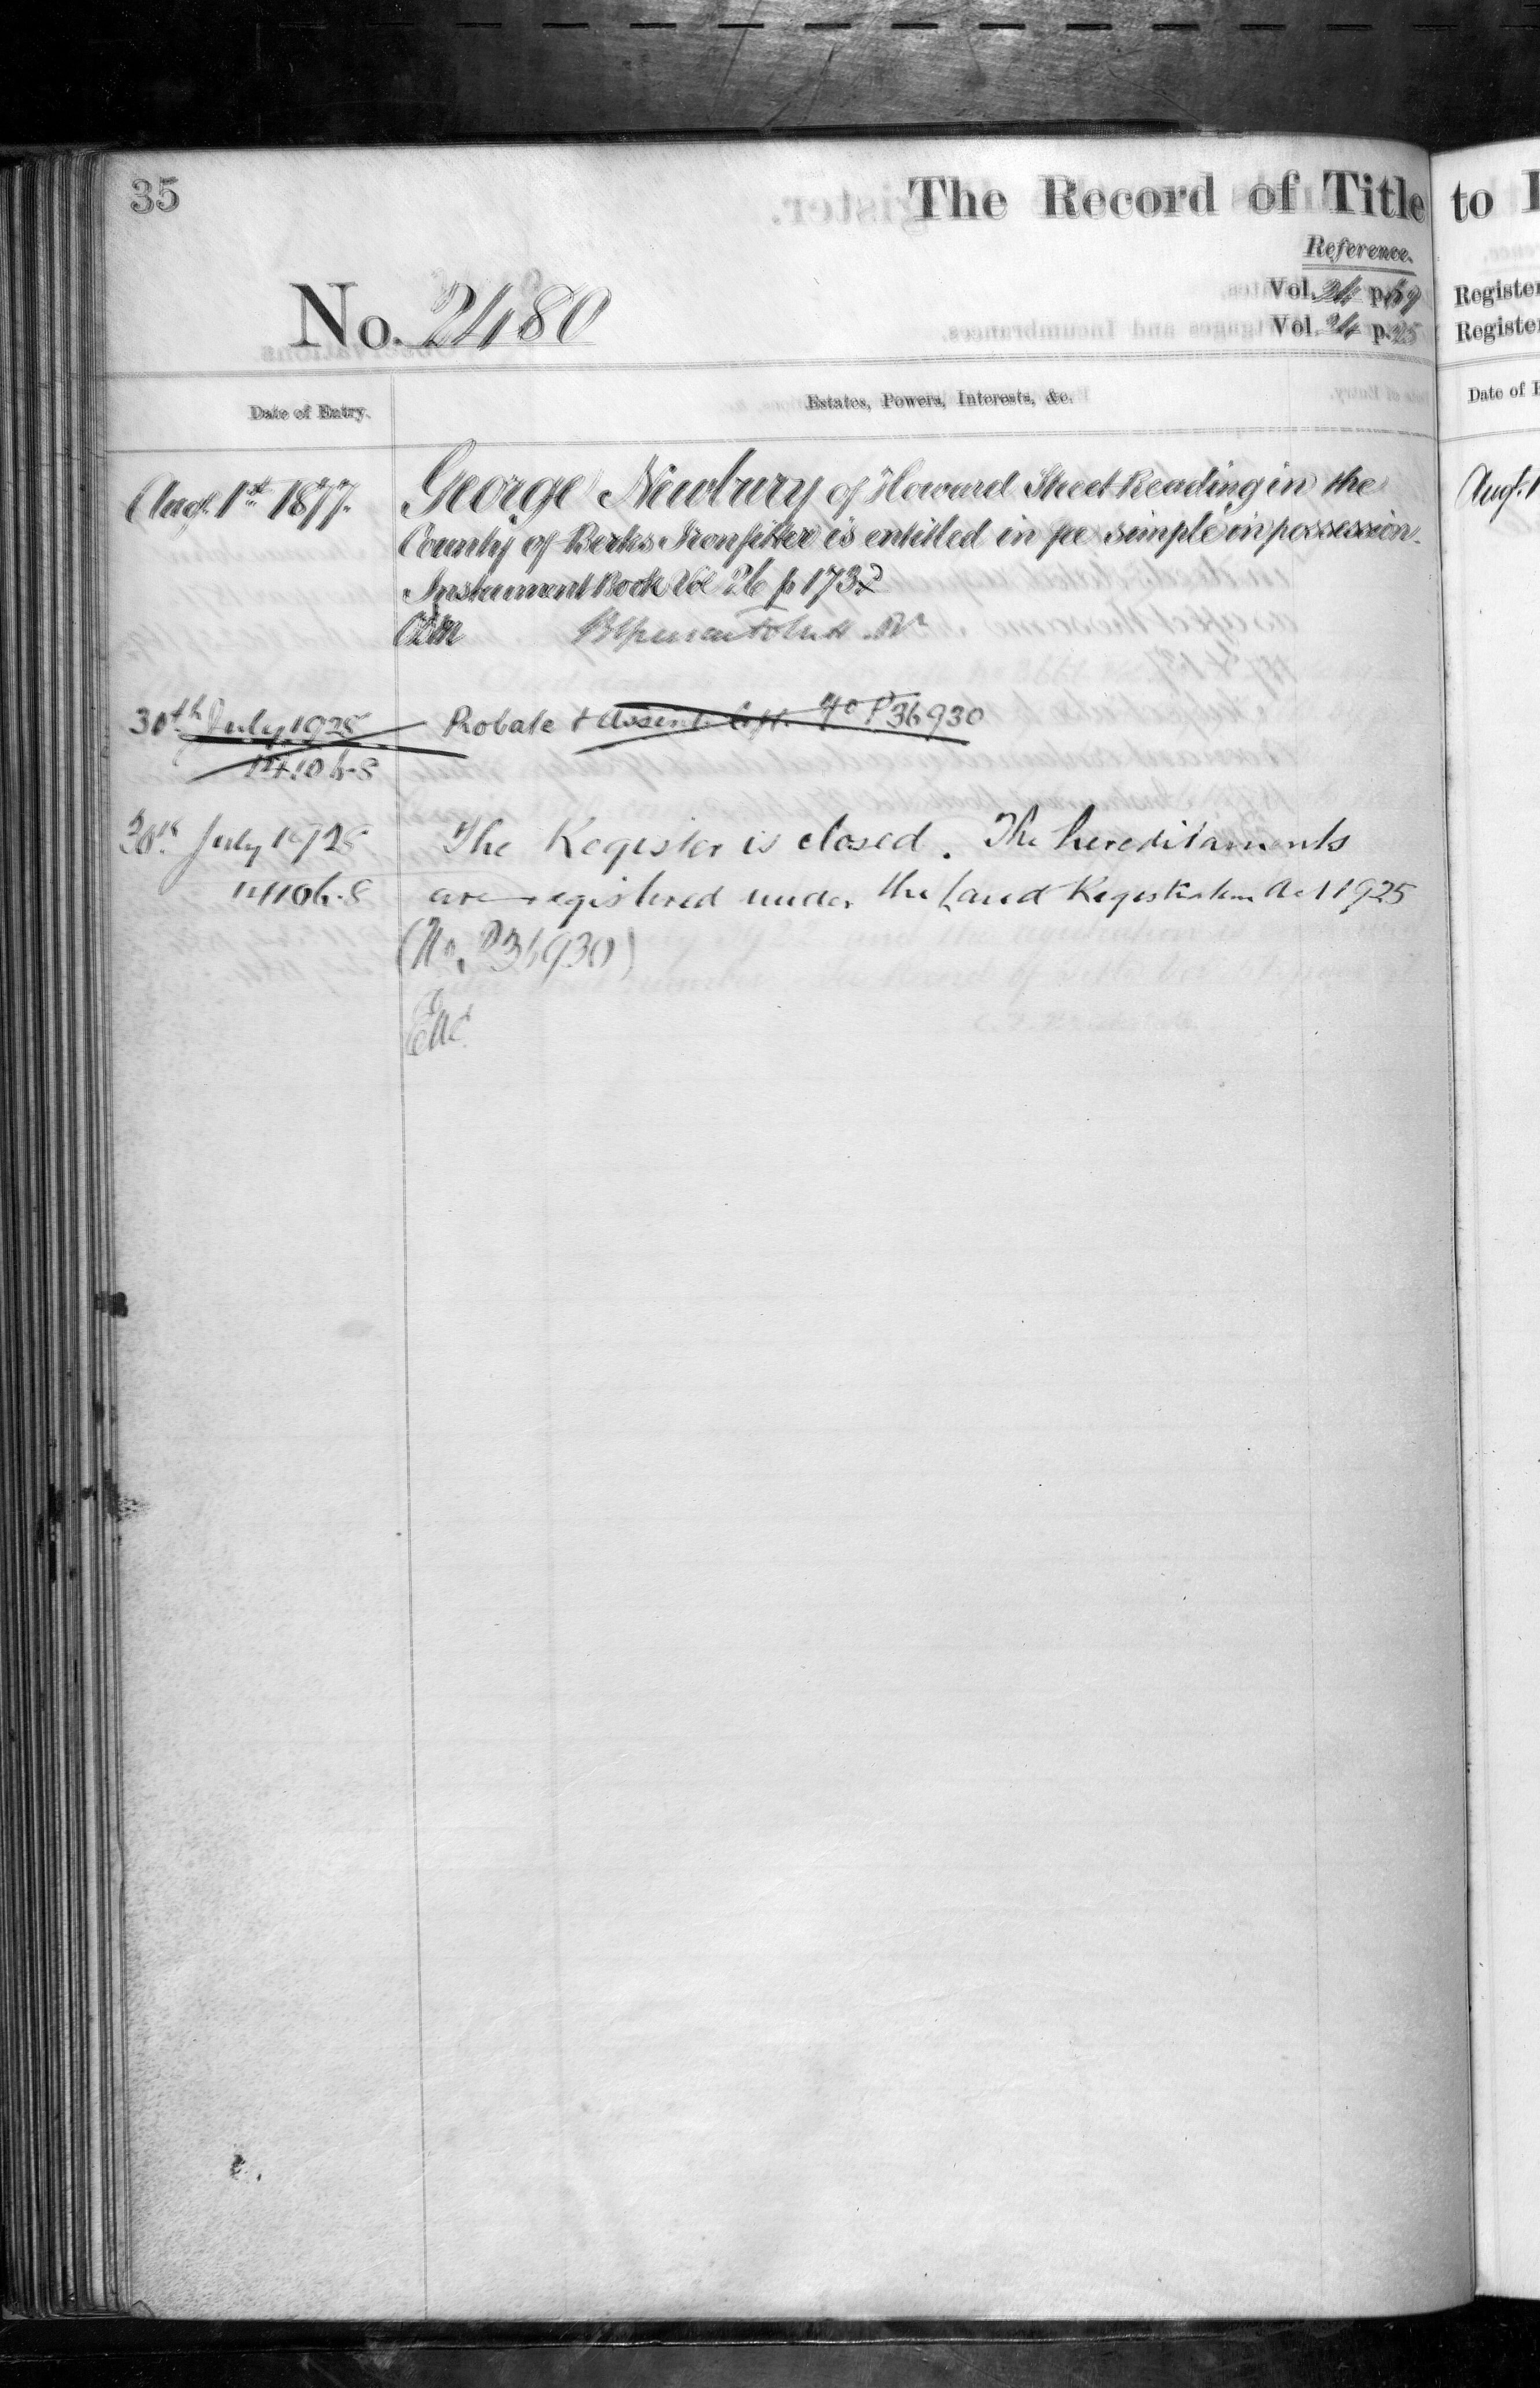 35
The Record of Title to
Reference.
Vol. 24 p. 69 Register
Vol. 24 p. 25 Register
No. 2480
Date of Entry.
Estates, Powers, Interests, &c.
Date of
Augt. 1st 1877.
George Newbury of Howard Street Reading in the
County of Berks Ironfitter is entitled in fee simple in possession.
Instrument Book Vol 26 p 173
Augt. 1
30th July 1928
Probate & Assent P36930
14106-8
30th July 1928
The Register is closed. The hereditaments
14106-8
are registered under the Land Registration Act 1925
(No. P36930)